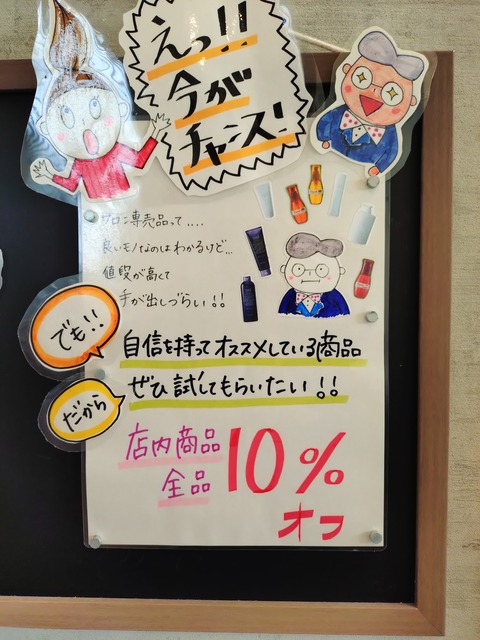 えっ!!
今が
チャンス!
サロン専売品って....
良いモノなのはわかるけど...
値段が高くて
手が出しづらい!!
でも!!
自信を持ってオススメしている商品
だから
ぜひ試してもらいたい!!
店内商品
全品
10%
オフ